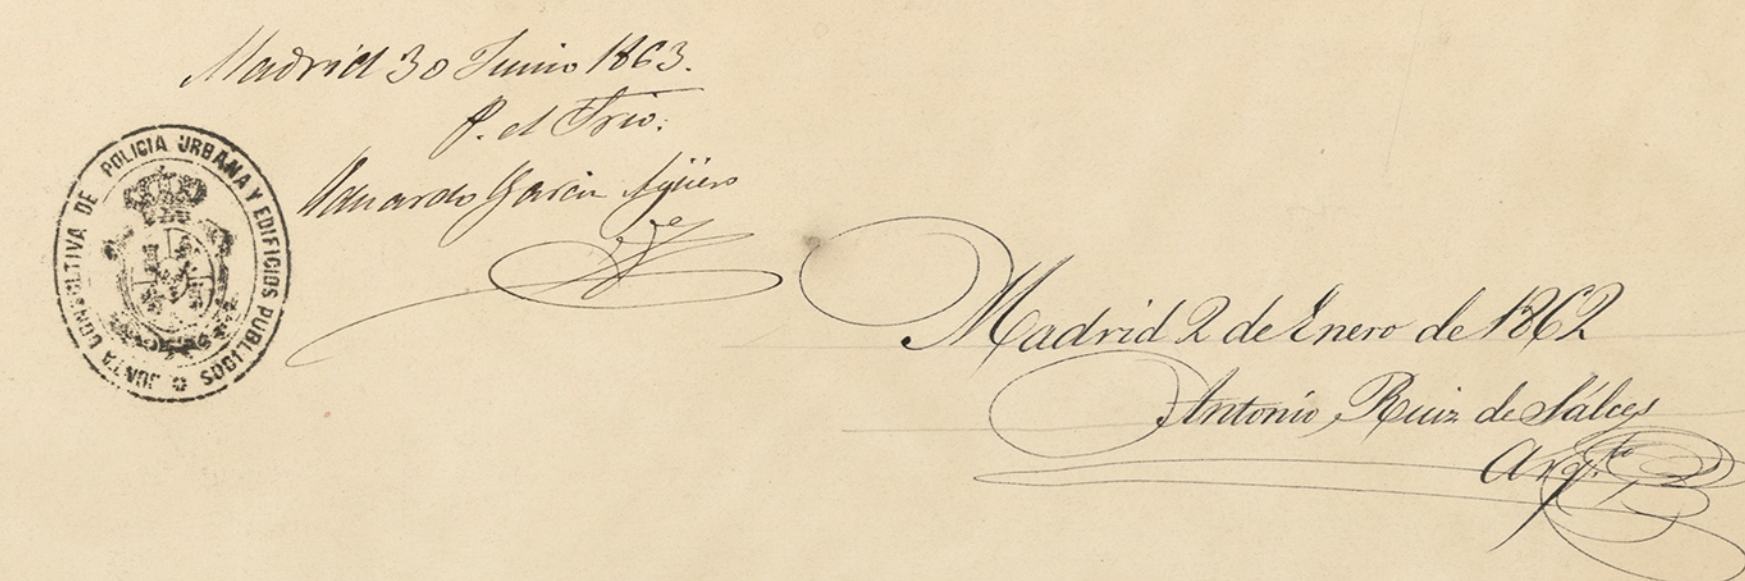 Madrid 30 Junio 1863.
P. el Srio.
Eduardo Garcia Agüero
JUNTA CONSULTIVA DE POLICIA URBANA Y EDIFICIOS PUBLICOS
Madrid 2 de Enero de 1862
Antonio Ruiz de Sálces
Arq.to